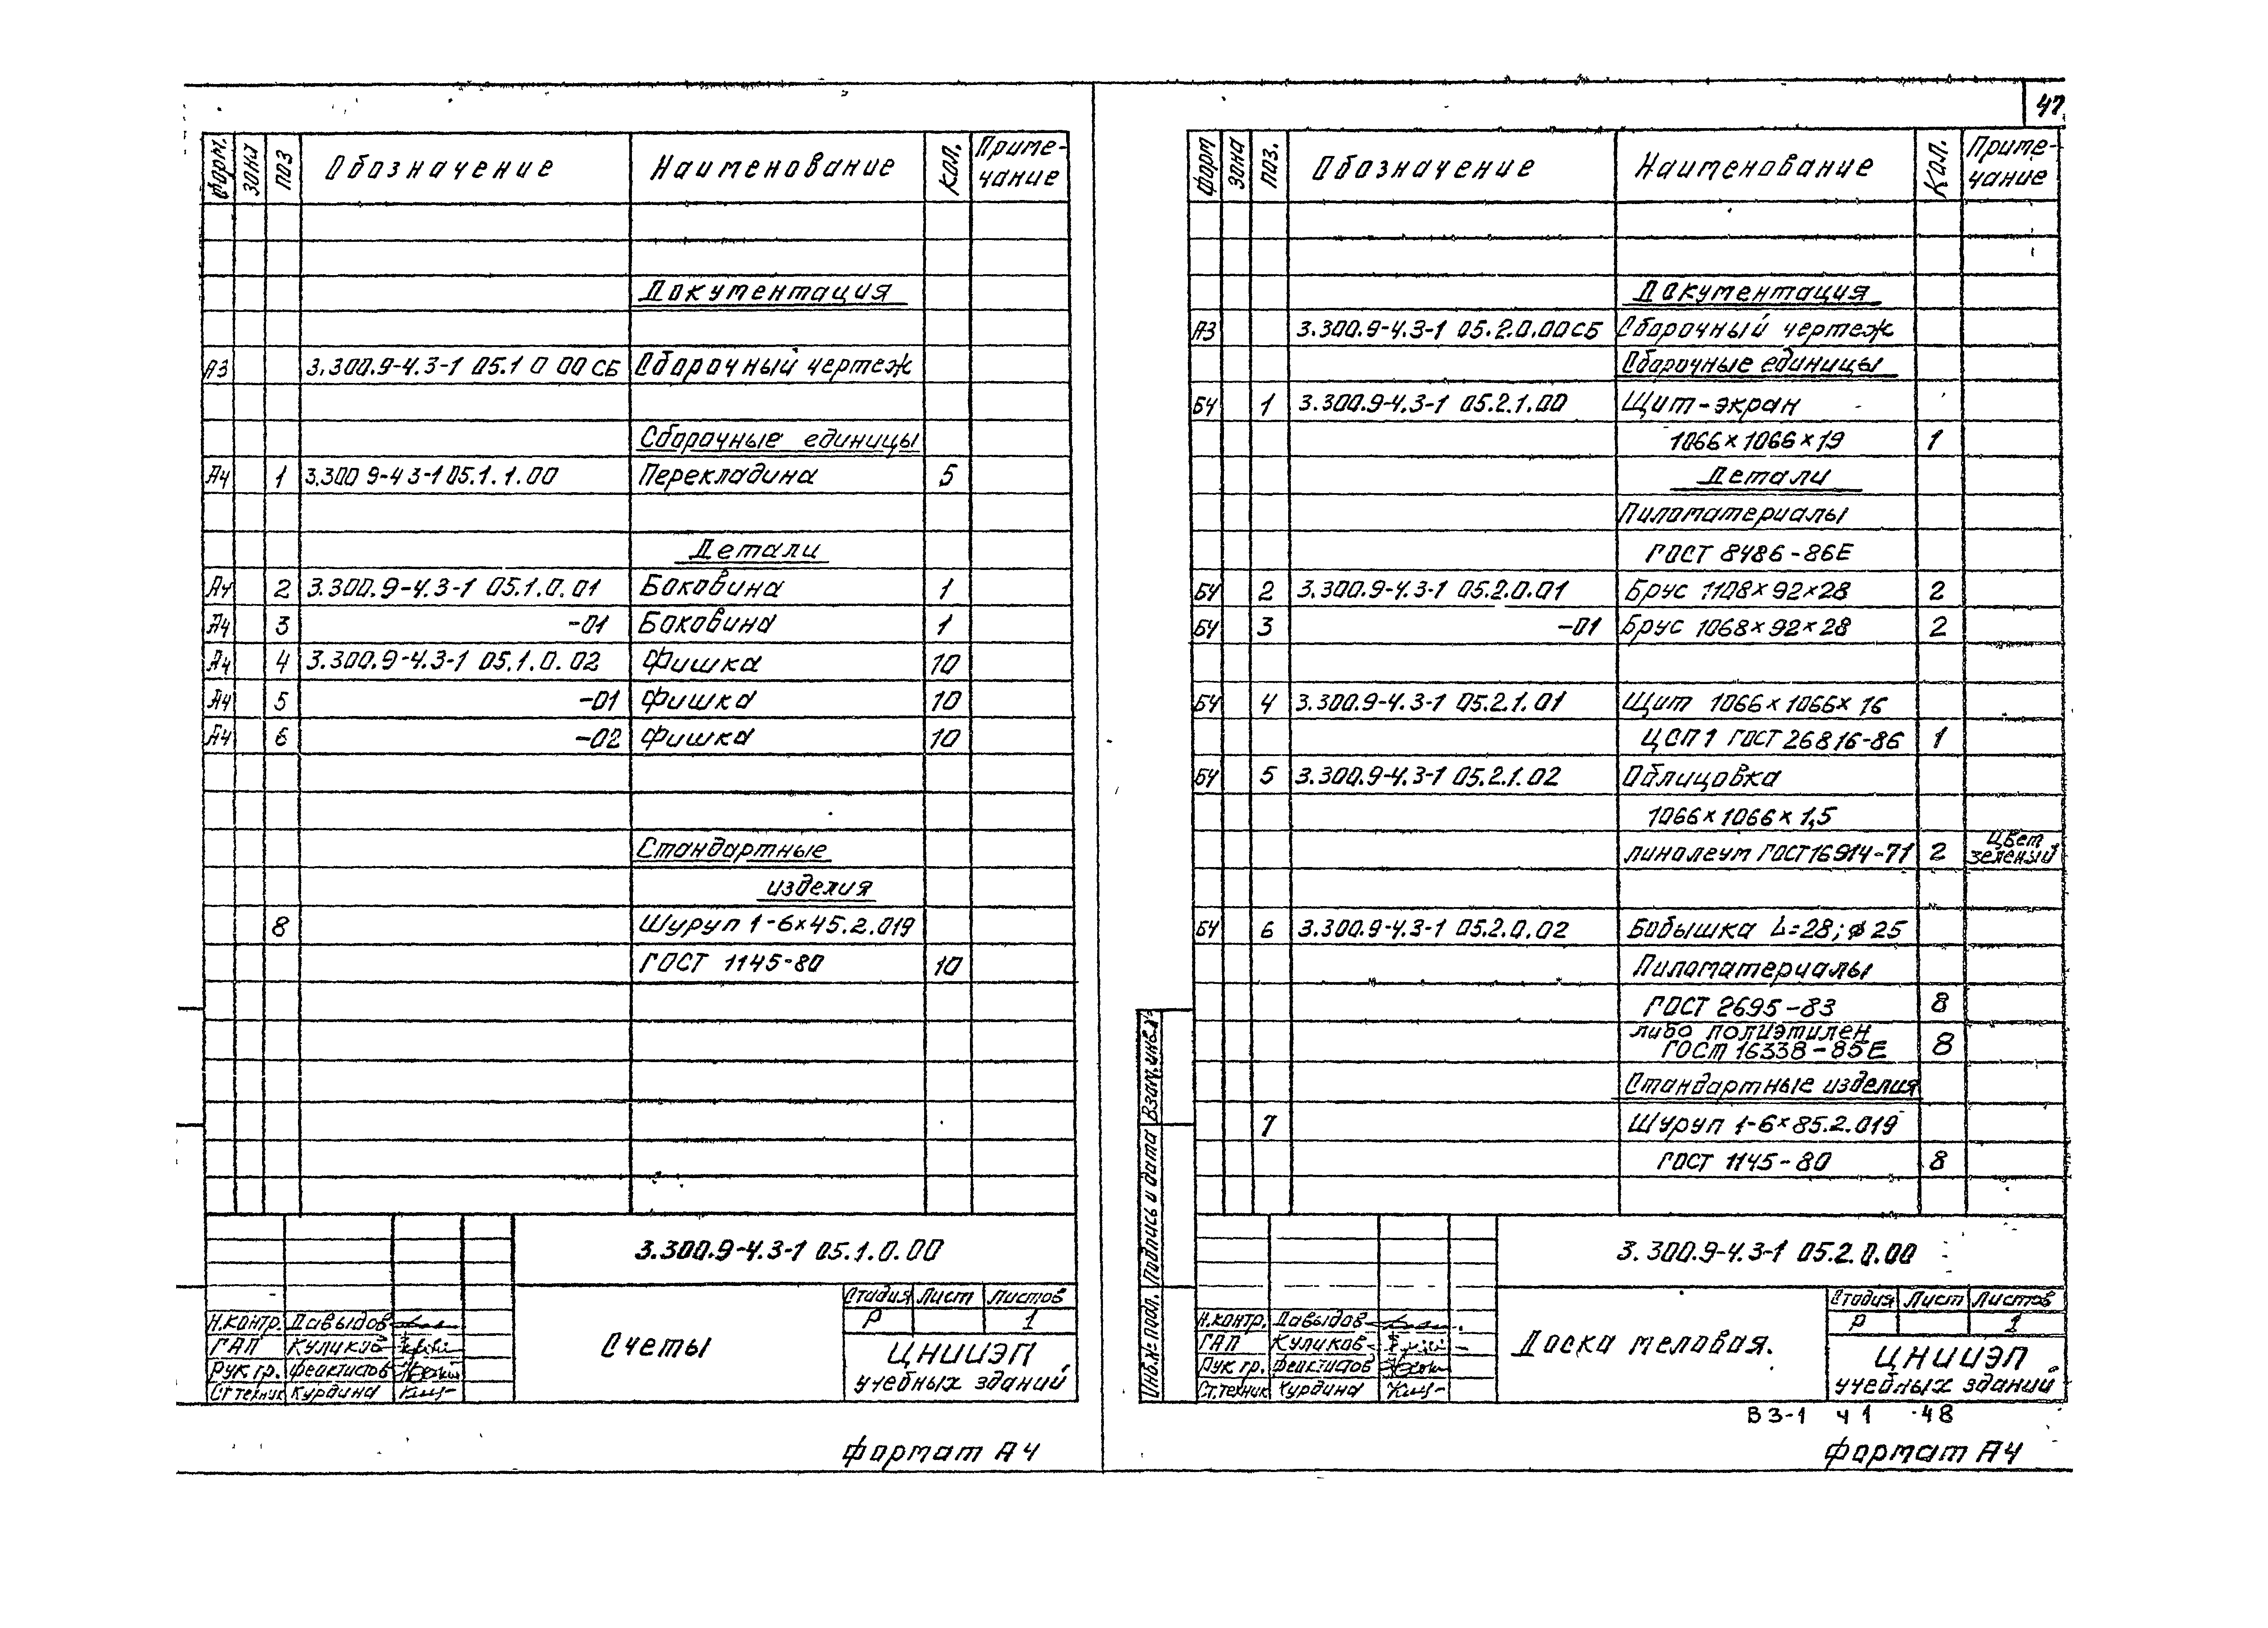 47
форм. зона поз Обозначение Наименование Кол. Приме-
чание
Документация
А3 3.300.9-4.3-1 05.1 0 00 СБ Сборочный чертеж
Сборочные единицы
А4 1 3.300 9-4 3-1 05.1.1.00 Перекладина 5
Детали
А4 2 3.300.9-4.3-1 05.1.0.01 Боковина 1
А4 3 -01 Боковина 1
А4 4 3.300.9-4.3-1 05.1.0.02 Фишка 10
А4 5 -01 Фишка 10
А4 6 -02 Фишка 10
Стандартные
изделия
8 Шуруп 1-6×45.2.019
ГОСТ 1145-80 10
3.300.9-4.3-1 05.1.0.00
Счеты
Стадия Лист Листов
Р 1
ЦНИИЭП
учебных зданий
Н.контр. Давыдов
ГАП Куликов
Рук гр. Феоктистов
Ст техник Курдина
Формат А4
форм зона поз. Обозначение Наименование Кол. Приме-
чание
Документация
А3 3.300.9-4.3-1 05.2.0.00СБ Сборочный чертеж
Сборочные единицы
БЧ 1 3.300.9-4.3-1 05.2.1.00 Щит-экран
1066×1066×19 1
Детали
Пиломатериалы
ГОСТ 8486-86Е
БЧ 2 3.300.9-4.3-1 05.2.0.01 Брус 1108×92×28 2
БЧ 3 -01 Брус 1068×92×28 2
БЧ 4 3.300.9-4.3-1 05.2.1.01 Щит 1066×1066×16
ЦСП1 ГОСТ 26816-86 1
БЧ 5 3.300.9-4.3-1 05.2.1.02 Облицовка
1066×1066×1,5
линолеум ГОСТ16914-71 2 Цвет
зеленый
БЧ 6 3.300.9-4.3-1 05.2.0.02 Бобышка L=28; ⌀25
Пиломатериалы
ГОСТ 2695-83 8
либо полиэтилен
ГОСТ 16338-85Е 8
Стандартные изделия
7 Шуруп 1-6×85.2.019
ГОСТ 1145-80 8
Инв.№ подл. Подпись и дата Взам.инв.№
3.300.9-4.3-1 05.2.0.00
Доска меловая.
Стадия Лист Листов
Р 1
ЦНИИЭП
учебных зданий
Н.контр. Давыдов
ГАП Куликов
Рук гр. Феоктистов
Ст.техник Курдина
В3-1 ч1 48
Формат А4